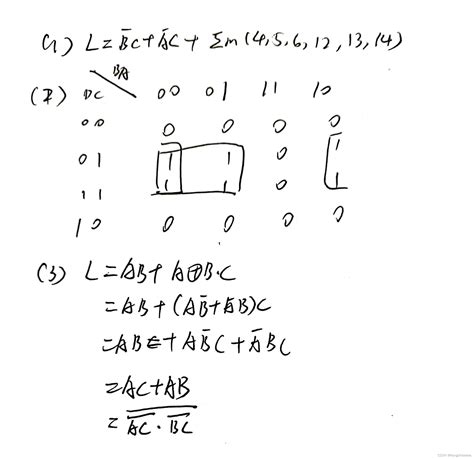 (1) L = B̅C + A̅C + Σm (4,5,6,12,13,14)
BA
(2) DC 00 01 11 10
00 0 0 0 0
01 1 1 0 1
11 1 1 0 1
10 0 0 0 0
(3) L = AB + A⊕B·C
= AB + (AB̅ + A̅B)C
= AB + AB̅C + A̅BC
= AC + AB
= \overline{\overline{AC} · \overline{BC}}